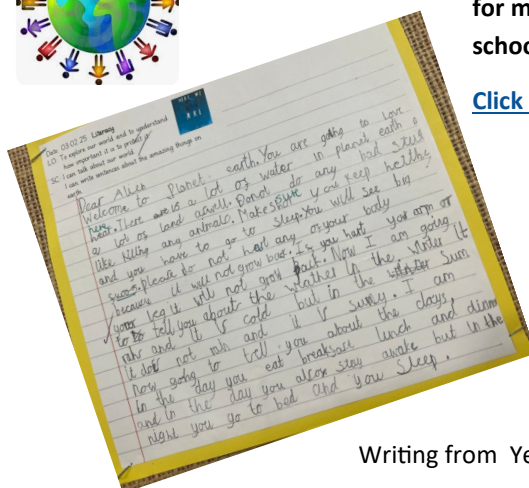 for m
schoo
Click
Date: 03.02.25 Literacy
LO: To explore our world and to understand
how important it is to protect it
SC: I can talk about our world
I can write sentences about the amazing things on
earth
HERE WE
ARE
Dear Alien
Welcome to Planet earth. You are going to love
here. There are is a lot of water in planet earth a
a lot os land aswell. Do not do any bad stuff
like killing any animals. Make sure you keep helthy
and you have to go to sleep. You will see big
Please do not hert any of your body
because it will not grow back. If you hurt your arm or
your leg it will not grow back. Now I am going
to tell you about the weather in the winter it
rain and it is cold but in the sum
it dos not rain and it is sunny. I am
now going to tell you about the days,
in the day you eat breakfast lunch and dinn
and in the day you also stay awake but in the
night you go to bed and you sleep.
Writing from Ye